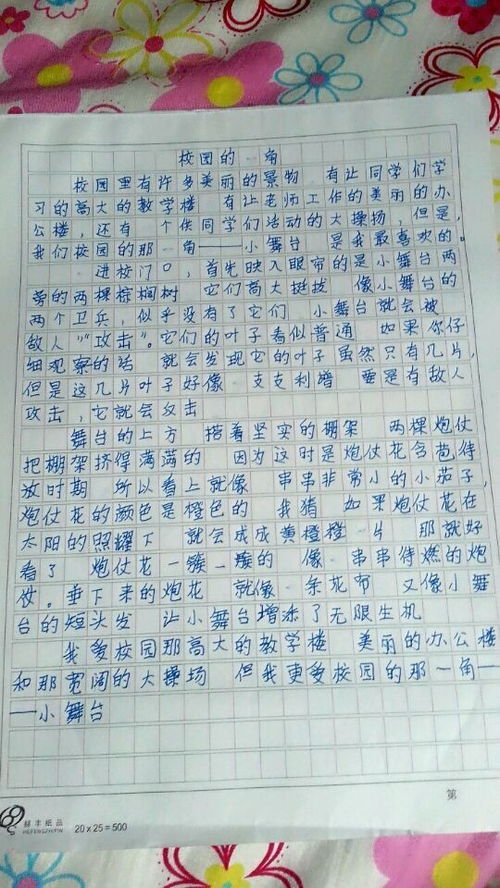 校园的一角
校园里有许多美丽的景物 有让同学们学
习的高大的教学楼 有让老师工作的美丽的办
公楼，还有 个供同学们活动的大操场，但是，
我们校园的那一角——小舞台 是我最喜欢的。
进校门口，首先映入眼帘的是小舞台两
旁的两棵棕榈树 它们高大挺拔 像小舞台的
两个卫兵，似乎没有了它们 小舞台就会被
敌人“攻击”。它们的叶子看似普通 如果你仔
细观察的话 就会发现它的叶子虽然只有几片，
但是这几片叶子好像 支支利 要是有敌人
攻击，它就会 击
舞台的上方 搭着坚实的棚架 两棵炮仗
把棚架挤得满满的 因为这时是炮仗花含苞待
放时期 所以看上就像 串串非常小的小茄子，
炮仗花的颜色是橙色的 我猜 如果炮仗花在
太阳的照耀下 就会成成黄橙橙一片 那就好
看了 炮仗花一簇一簇的 像一串串待燃的炮
仗。垂下来的炮花 就像一条花布 又像小舞
台的短头发 让小舞台增添了无限生机
我爱校园那高大的教学楼 美丽的办公楼
和那宽阔的大操场 但我更爱校园的那一角—
—小舞台
第
赫丰纸品
HEFENGZHIPIN
20×25=500